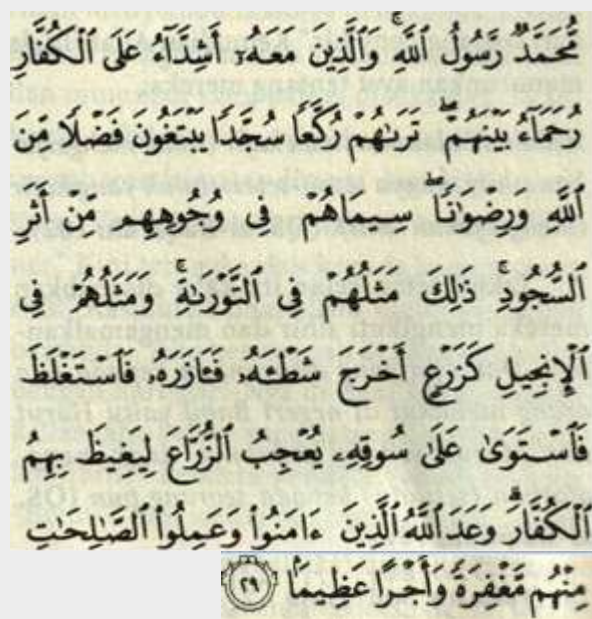 مُّحَمَّدٌ رَّسُولُ ٱللَّهِ ۚ وَٱلَّذِينَ مَعَهُۥٓ أَشِدَّآءُ عَلَى ٱلْكُفَّارِ
رُحَمَآءُ بَيْنَهُمْ ۖ تَرَىٰهُمْ رُكَّعًا سُجَّدًا يَبْتَغُونَ فَضْلًا مِّنَ
ٱللَّهِ وَرِضْوَٰنًا ۖ سِيمَاهُمْ فِى وُجُوهِهِم مِّنْ أَثَرِ
ٱلسُّجُودِ ۚ ذَٰلِكَ مَثَلُهُمْ فِى ٱلتَّوْرَىٰةِ ۚ وَمَثَلُهُمْ فِى
ٱلْإِنجِيلِ كَزَرْعٍ أَخْرَجَ شَطْـَٔهُۥ فَـَٔازَرَهُۥ فَٱسْتَغْلَظَ
فَٱسْتَوَىٰ عَلَىٰ سُوقِهِۦ يُعْجِبُ ٱلزُّرَّاعَ لِيَغِيظَ بِهِمُ
ٱلْكُفَّارَ ۗ وَعَدَ ٱللَّهُ ٱلَّذِينَ ءَامَنُوا۟ وَعَمِلُوا۟ ٱلصَّـٰلِحَـٰتِ
مِنْهُم مَّغْفِرَةً وَأَجْرًا عَظِيمًۢا ٢٩